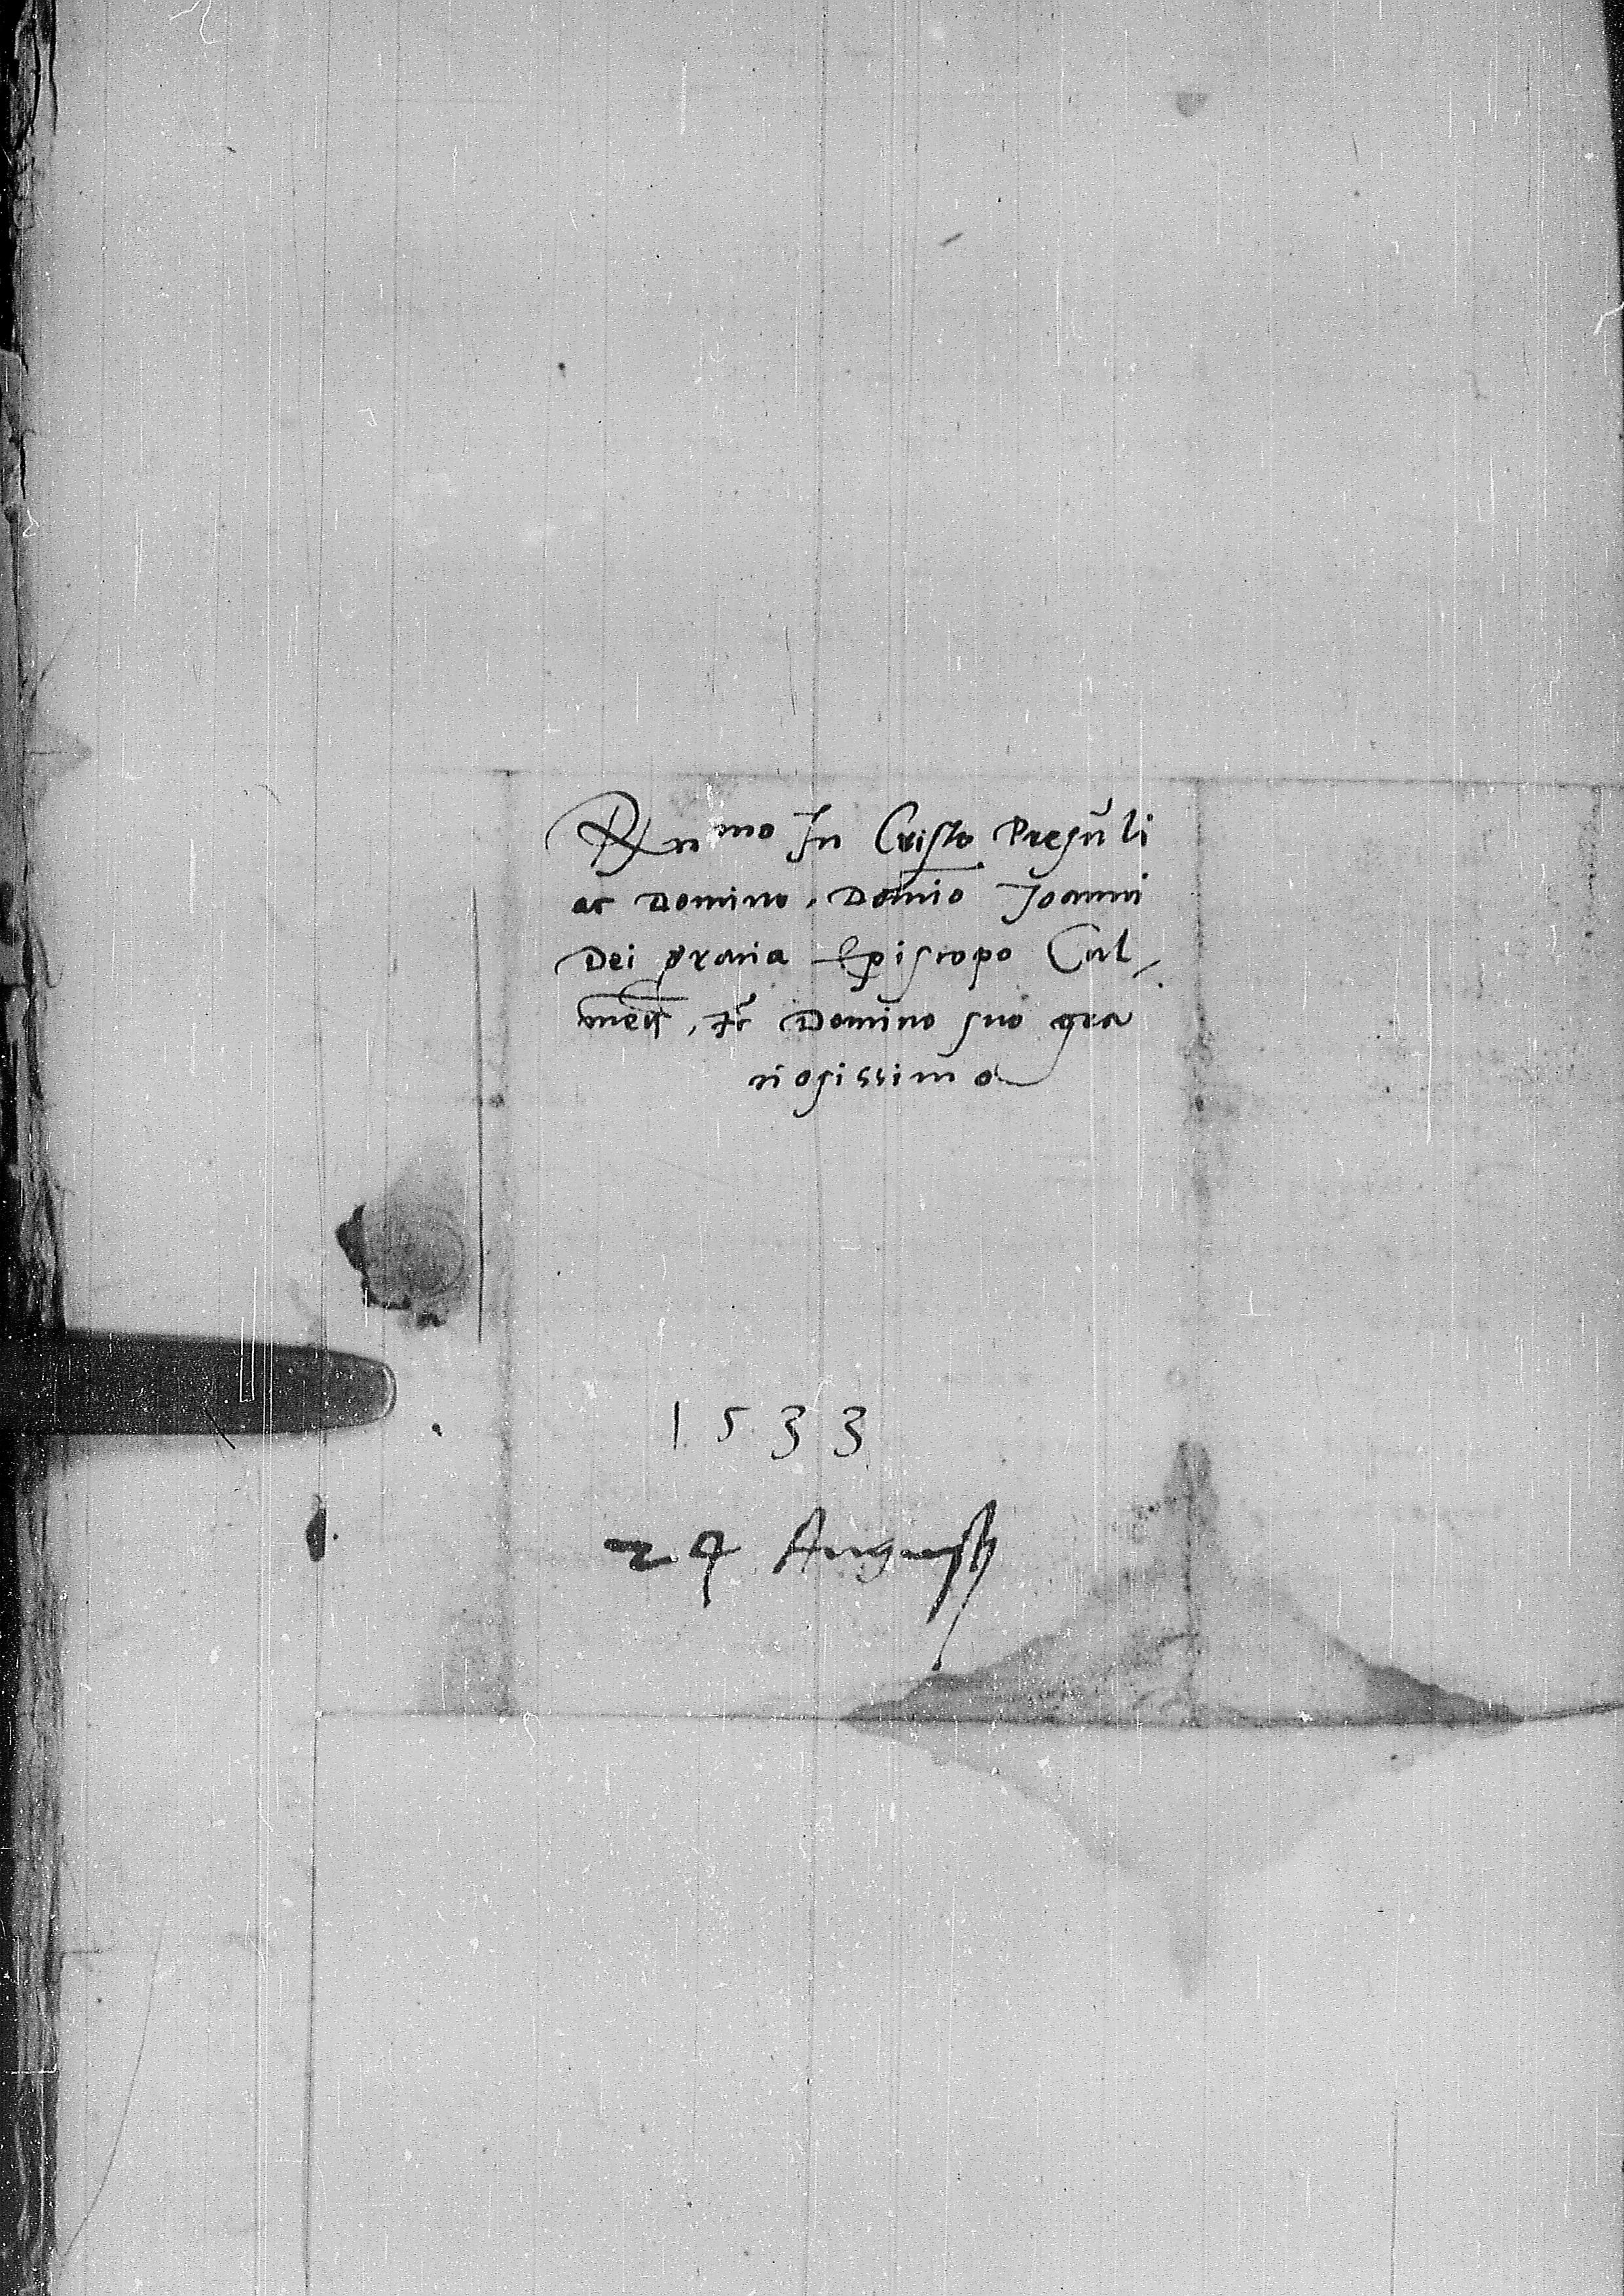 Rn mo In Cristo Presuli
ac Domino, Domio Joanni
Dei gratia Episcopo Cul-
men̄, etc Domino suo gra
tiosissimo
1533
24 Augusti